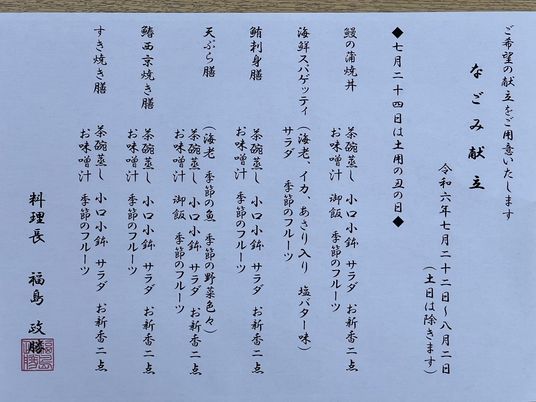 ご希望の献立をご用意いたします
なごみ献立
令和六年七月二十二日～八月二日
(土日は除きます)
◆七月二十四日は土用の丑の日◆
鰻の蒲焼丼
茶碗蒸し 小口小鉢 サラダ お新香二点
お味噌汁 季節のフルーツ
海鮮スパゲッティ (海老、イカ、あさり入り 塩バター味)
サラダ 季節のフルーツ
鮪刺身膳
茶碗蒸し 小口小鉢 サラダ お新香二点
お味噌汁 御飯 季節のフルーツ
天ぷら膳
(海老 季節の魚 季節の野菜色々)
茶碗蒸し 小口小鉢 サラダ お新香二点
お味噌汁 御飯 季節のフルーツ
鰆西京焼き膳
茶碗蒸し 小口小鉢 サラダ お新香二点
お味噌汁 季節のフルーツ
すき焼き膳
茶碗蒸し 小口小鉢 サラダ お新香二点
お味噌汁 季節のフルーツ
料理長 福島 政勝